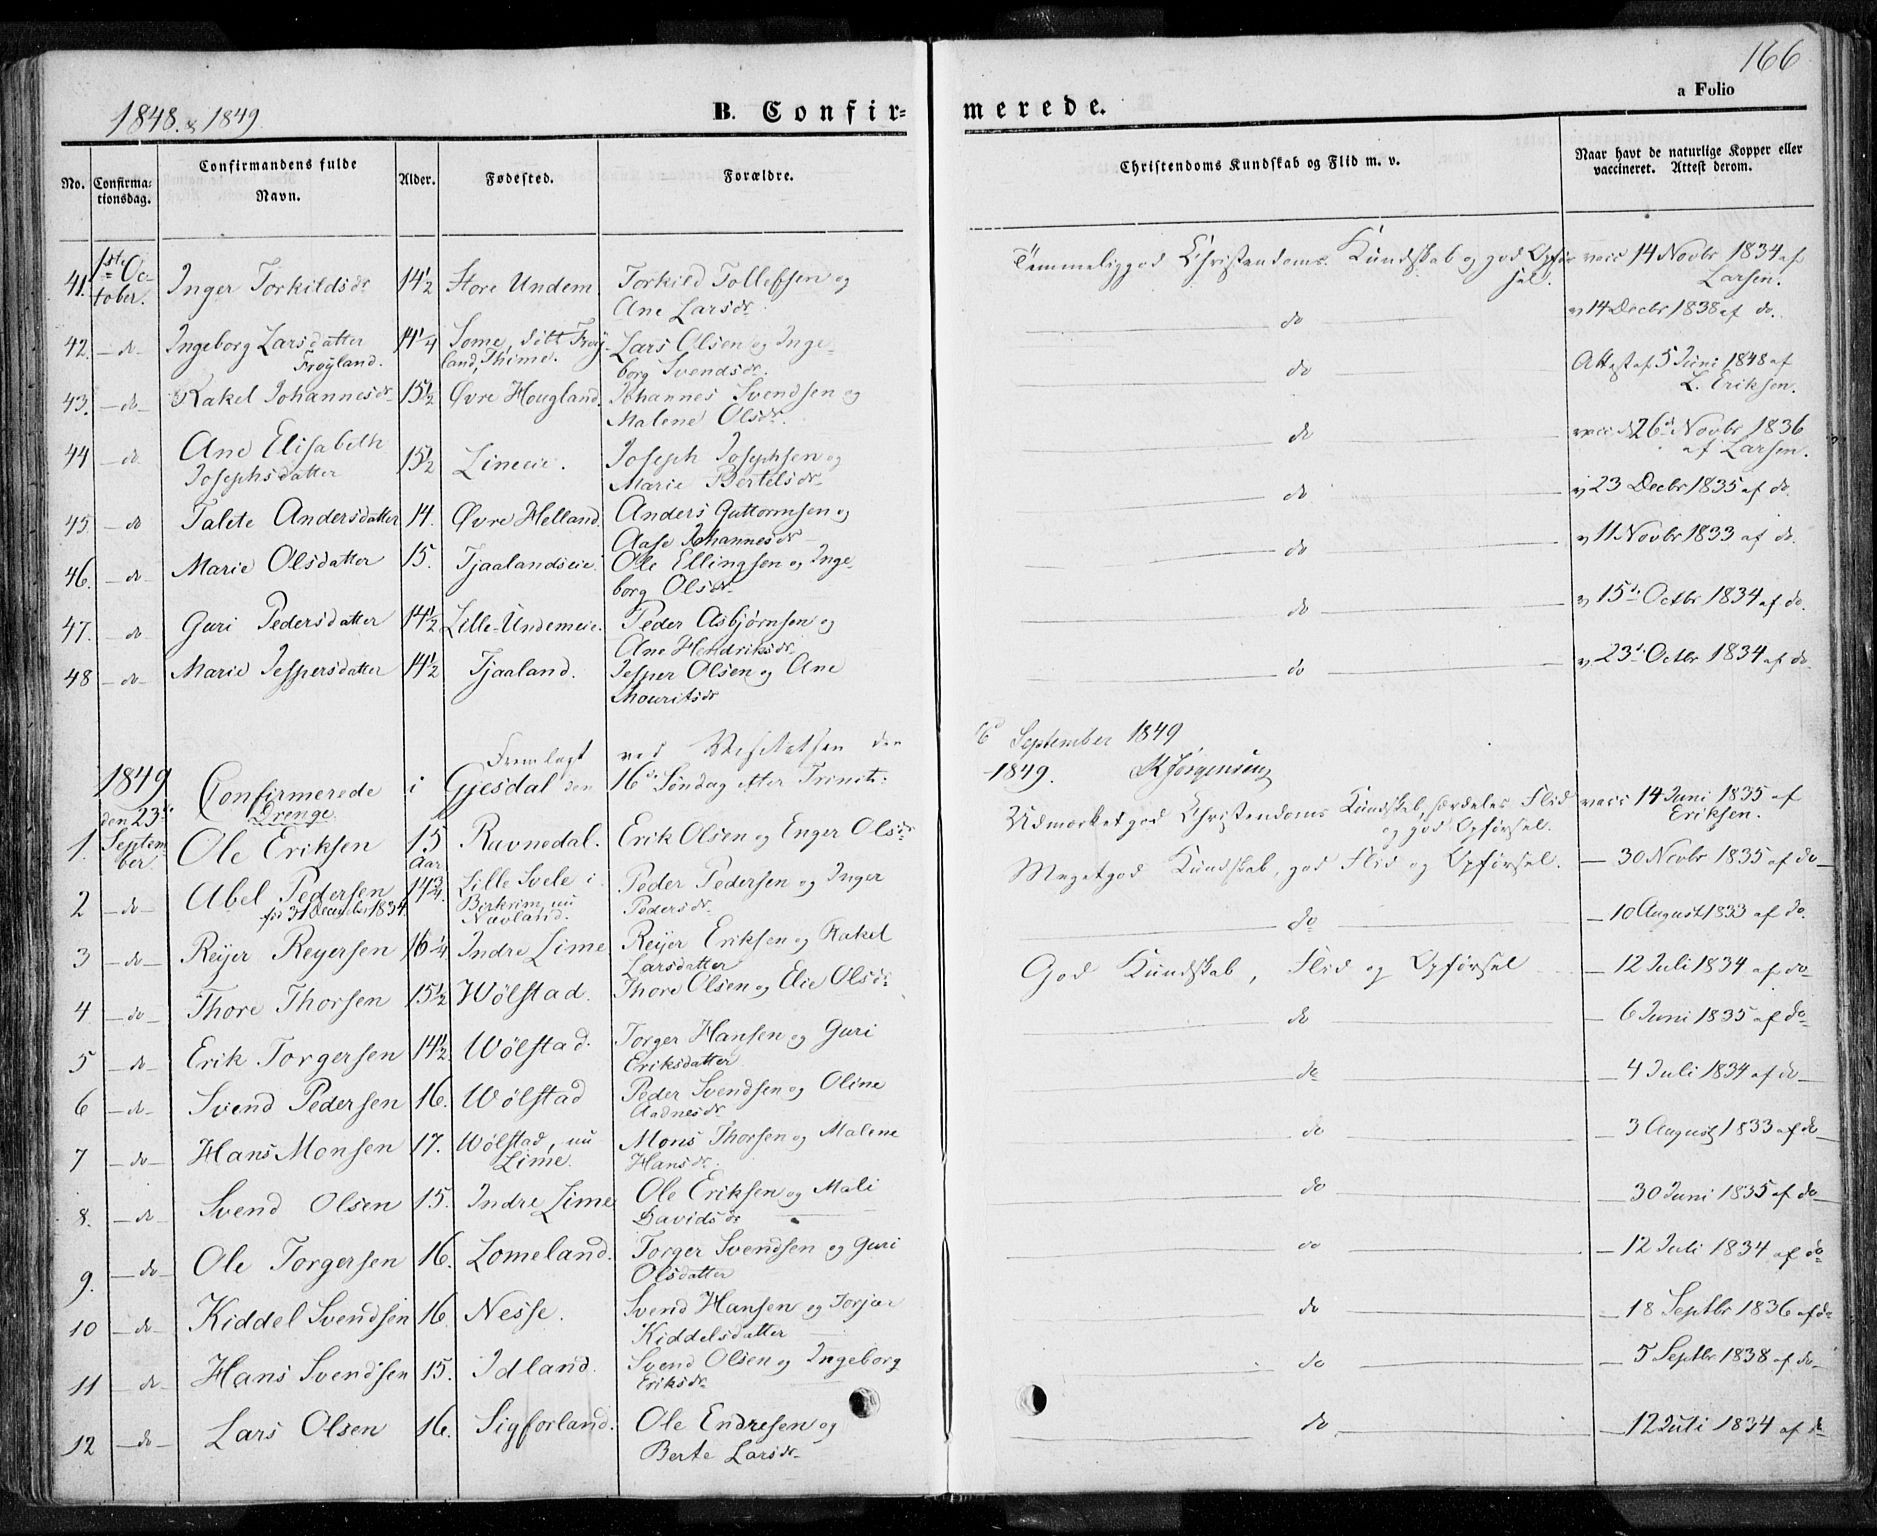 166
a Folio
1848. & 1849
B. Confir= merede.
No.
Confirma-
tionsdag.
Confirmandens fulde
Navn.
Alder.
Fødested.
Forældre.
Christendoms Kundskab og Flid m. v.
Naar havt de naturlige Kopper eller
vaccineret. Attest derom.
41. 1ste Oc- Inger Torkildsdr 14½ Store Undem Torkild Tollefsen og Temmeliggod Christendoms Kundskab og god Opfør vacc 14 Novbr 1834 af
tober. Ane Larsdr sel. Larsen.
42. – do – Ingeborg Larsdatter 14¼ Some, Frøy- Lars Olsen og Inge- do v 14 Decbr 1838 af do.
Frøyland. land, Thime. borg Svendsdr.
43. – do – Rakel Johannesdr 15½ Øvre Hougland. Johannes Svendsen og do Attest af 5 Juni 1848 af
Malene Olsdr. L. Eriksen.
44 – do Ane Elisabeth 15½ Limeeie. Joseph Josephsen og do vacc d 26d Novbr 1836
Josephsdatter Marie Bertelsdr af Larsen.
45. – do Talete Andersdatter 14. Øvre Helland. Anders Guttormsen og do v 23 Decbr 1835 af do.
Aase Johannesdr
46. – do Marie Olsdatter 15. Tjaalandseie. Ole Ellingsen og Inge- do v 11 Novbr 1833 af do.
borg Olsdr
47. – do Guri Pedersdatter 14½ Lille-Undemeie. Peder Asbjørnsen og do v 15d Octbr 1834 af do.
Ane Hendriksdr
48 – do – Marie Jespersdatter 14½ Tjaaland. Jesper Olsen og Ane do v 23d Octbr 1834 af do
Mouritsdr
Fremlagt ved Visitatsen den 6 September 1849
Jørgensen
1849 Confirmerede i Gjesdal den 16de Søndag efter Trinit: 1849.
den 23de Drenge.
1. Septem Ole Eriksen 15 Ravnedal. Erik Olsen og Enger Olsdr Udmærketgod Christendoms Kundskab, særdeles Flid vacc 14 Juni 1835 af
ber. Aar og god Opførsel. Eriksen.
2 – do – Abel Pedersen 14¾. Lille Svele i Peder Pedersen og Inger Megetgod Kundskab, god Flid og Opførsel. – 30 Novbr 1835 af do –
fød 31 December 1834. Birkrim, nu Pedersdr.
Nævland.
3 – do – Reijer Reyersen 16¼ Indre Lime Reijer Eriksen og Rakel do – 10 August 1833 af do.
Larsdatter
4 – do – Thore Thorsen 15½ Wølstad. Thore Olsen og Elie Olsdr God Kundskab, Flid og Opførsel – 12 Juli 1834 af do –
5 – do – Erik Torgersen 14½ Wølstad. Torger Hansen og Guri do – 6 Juni 1835 af do
Eriksdatter
6 – do – Svend Pedersen 16. Wølstad Peder Svendsen og Oline do – 4 Juli 1834 af do –
Aadnesdr
7 – do – Hans Monsen 17. Wølstad, nu Mons Thorsen og Malene do – 3 August 1833 af do –
Lime. Hansdr.
8. – do – Svend Olsen 15. Indre Lime Ole Eriksen og Mali do – 30 Juni 1835 af do –
Davidsdr
9. – do – Ole Torgersen 16. Lomeland. Torger Svendsen og Guri do – 12 Juli 1834 af do
Olsdatter
10 – do – Kiddel Svendsen 16 Nesse. Svend Hansen og Torjær do – 18 Septbr 1836 af do
Kiddelsdatter
11 – do – Hans Svendsen 15. Idland. Svend Olsen og Ingeborg do – 5 Septbr 1838 af do –
Eriksdr
12 – do – Lars Olsen 16. Sigforland. Ole Endresen og do – 12 Juli 1834 af do
Berte Larsdr